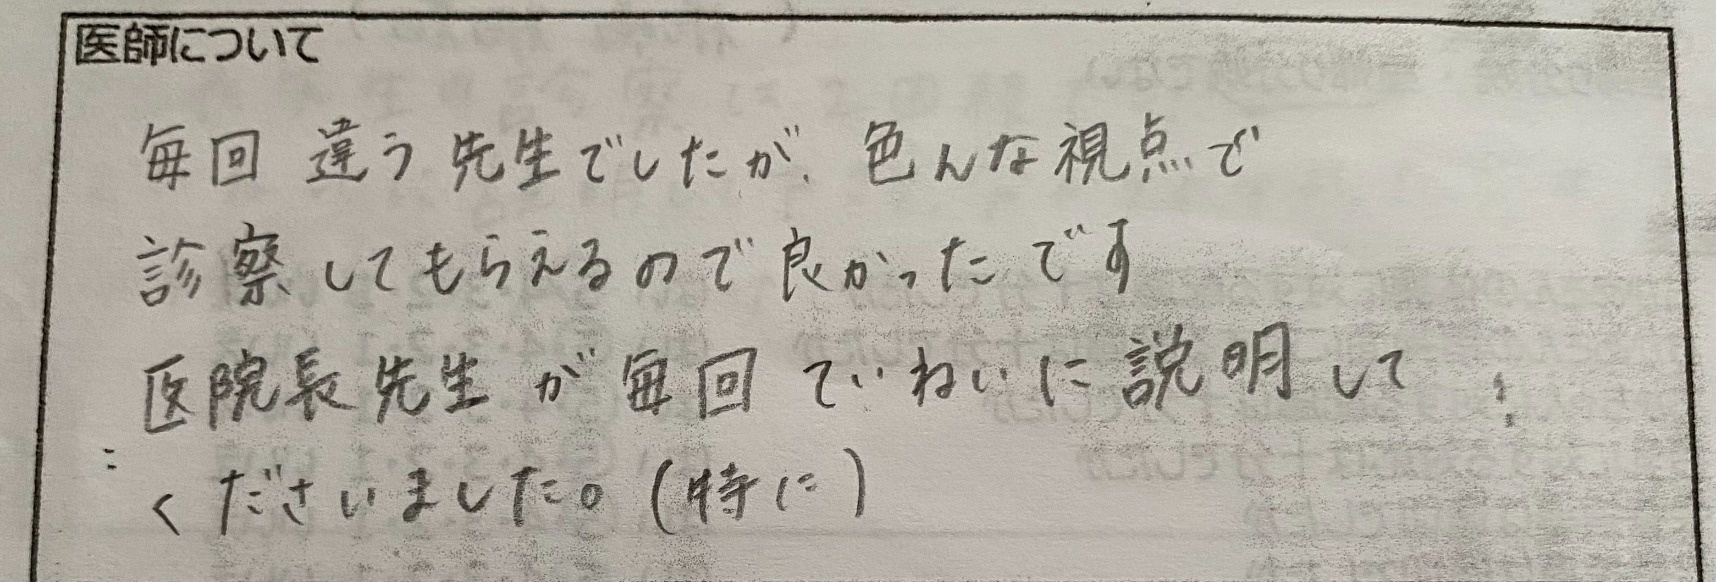 医師について
毎回 違う先生でしたが、色んな視点で
診察してもらえるので良かったです
医院長先生が毎回ていねいに説明して
くださいました。(特に)